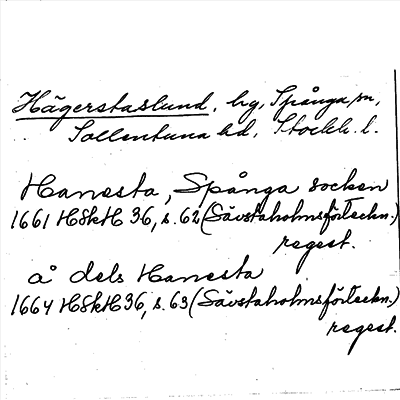 Hägerstaslund, hg, Spånga sn,
Sollentuna hd, Stockh. l.
Hanesta, Spånga socken
1661 HSkH 36, s. 62 (Sävstaholmsförteckn.)
regest.
à dels Hanesta
1664 HSkH 36, s. 63 (Sävstaholmsförteckn.)
regest.